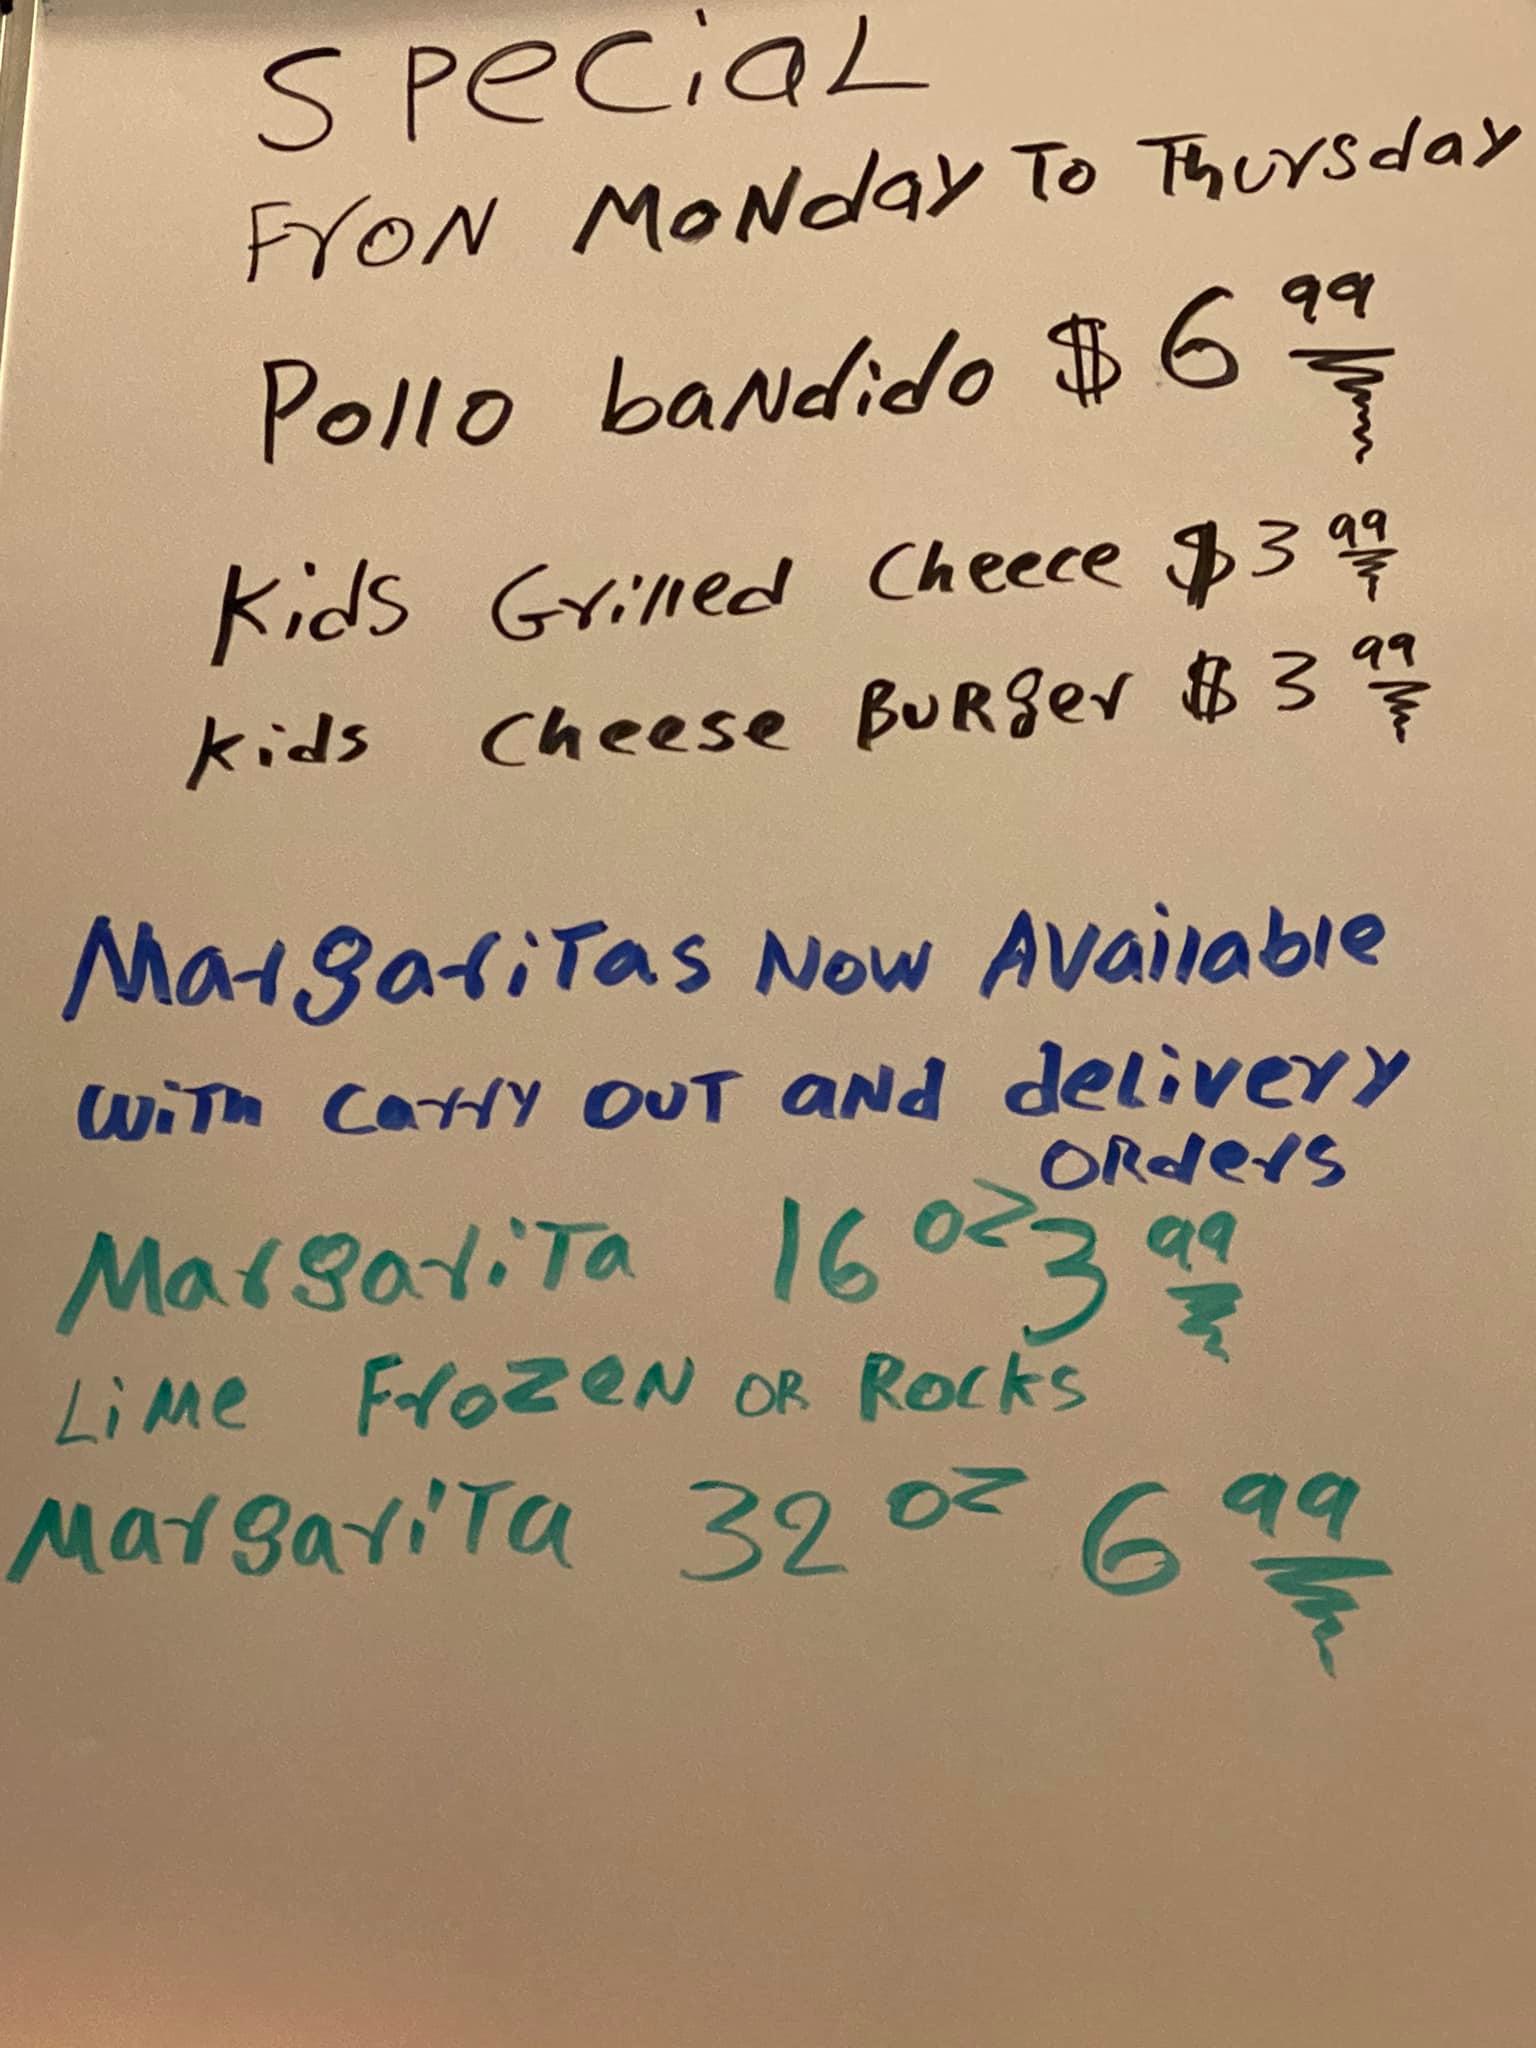 Special
Fron Monday To Thursday
Pollo bandido $6 99
Kids Grilled Cheece $3 99
Kids Cheese Burger $3 99
Margaritas Now Available
with Carry out and delivery
orders
Margarita 16 oz 3 99
Lime Frozen or Rocks
Margarita 32 oz 6 99